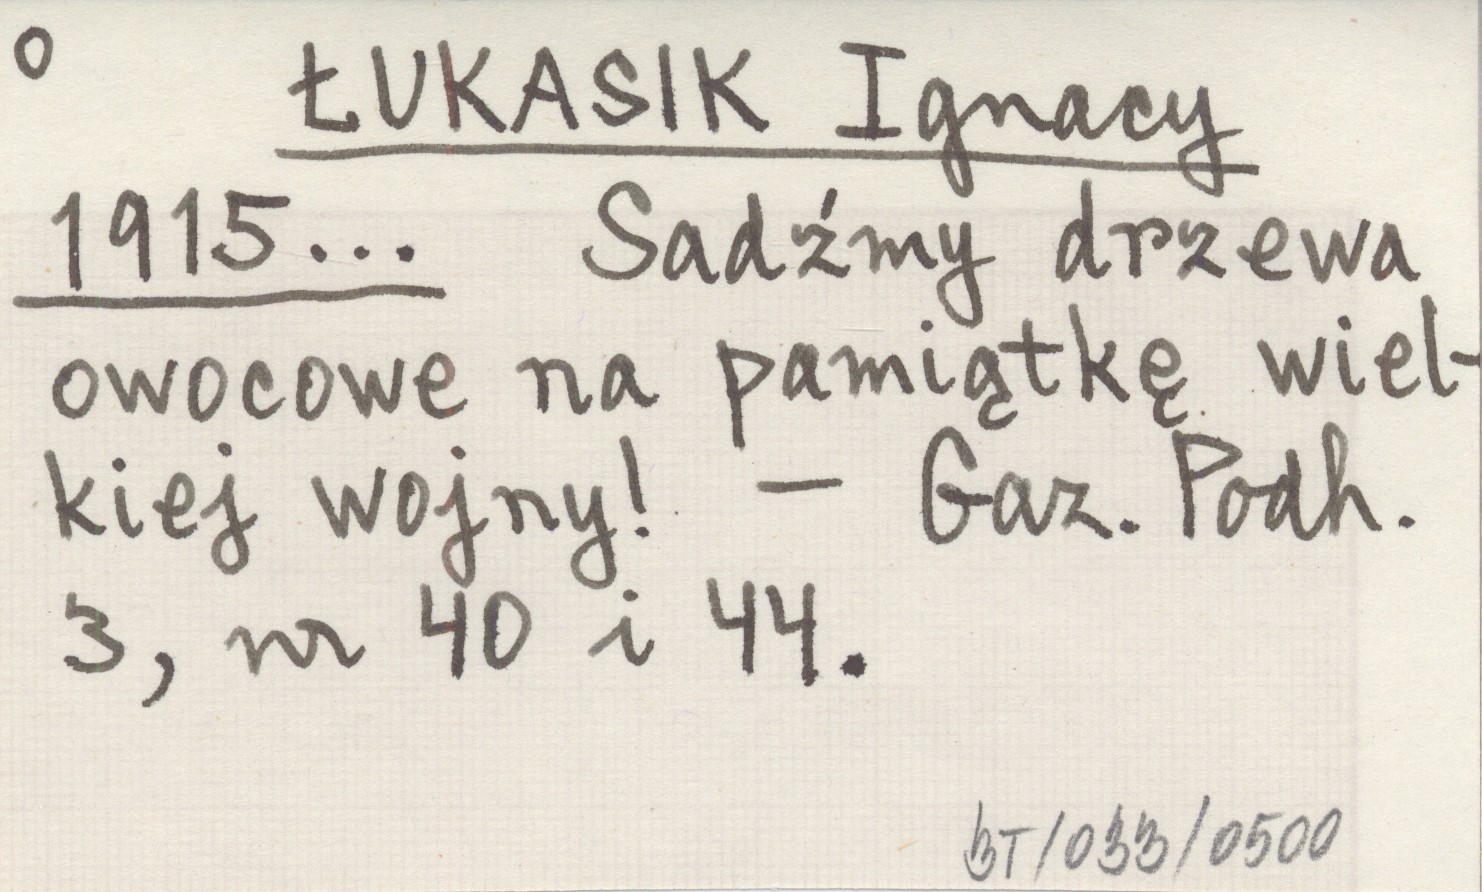 o
ŁUKASIK Ignacy
1915... Sadźmy drzewa
owocowe na pamiątkę wiel-
kiej wojny! — Gaz. Podh.
3, nr 40 i 44.
BT/033/0500